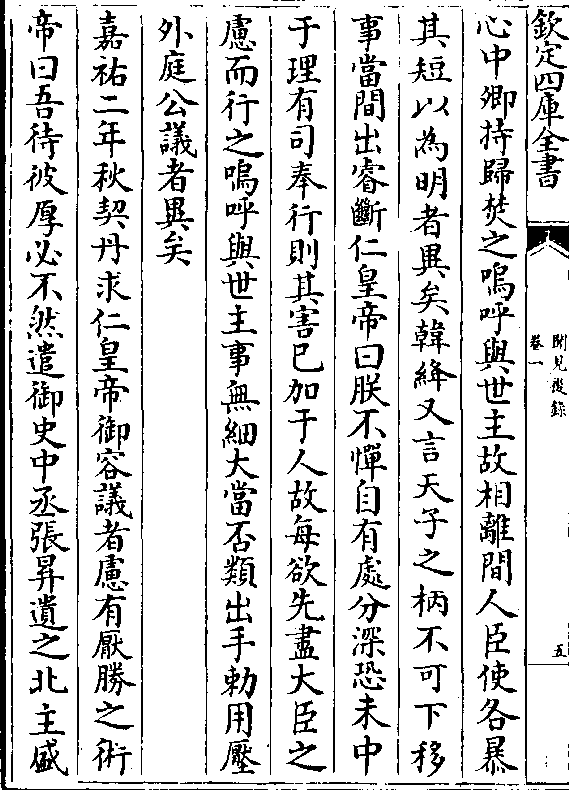 欽定四庫全書
聞見後錄
卷一
五
心中卿持歸焚之嗚呼與世主故相離間人臣使各暴
其短以為明者異矣韓絳又言天子之柄不可下移
事當間出睿斷仁皇帝曰朕不憚自有處分深恐未中
于理有司奉行則其害已加于人故每欲先盡大臣之
慮而行之嗚呼與世主事無細大當否類出手勅用壓
外庭公議者異矣
嘉祐二年秋契丹求仁皇帝御容議者慮有厭勝之術
帝曰吾待彼厚必不然遣御史中丞張昪遺之北主盛